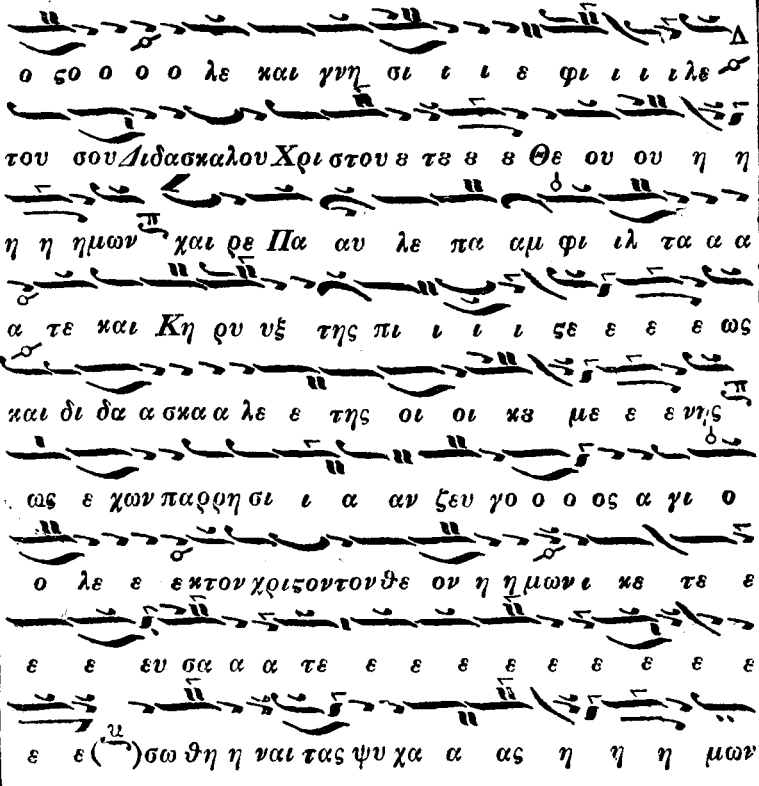 ο ϛο ο ο ο λε και γνη σι ι ι ε φι ι ι ι λε
του σου Διδασκαλου Χρι στου ȣ τȣ ȣ ȣ Θε ου ου η η
η η ημων χαι ρε Πα αυ λε πα αμ φι ιλ τα α α
α τε και Κη ρυ υξ της πι ι ι ι ϛε ε ε ε ως
και δι δα α σκα α λε ε της οι οι κȣ με ε ε νης
ως ε χων παρρη σι ι α αν ζευ γο ο ο ος α γι ο
ο λε ε ε κτον χριϛον τον θε ον η η μων ι κε τε ε
ε ε ευ σα α α τε ε ε ε ε ε ε ε ε ε
ε ε σω θη η ναι τας ψυ χα α ας η η η μων